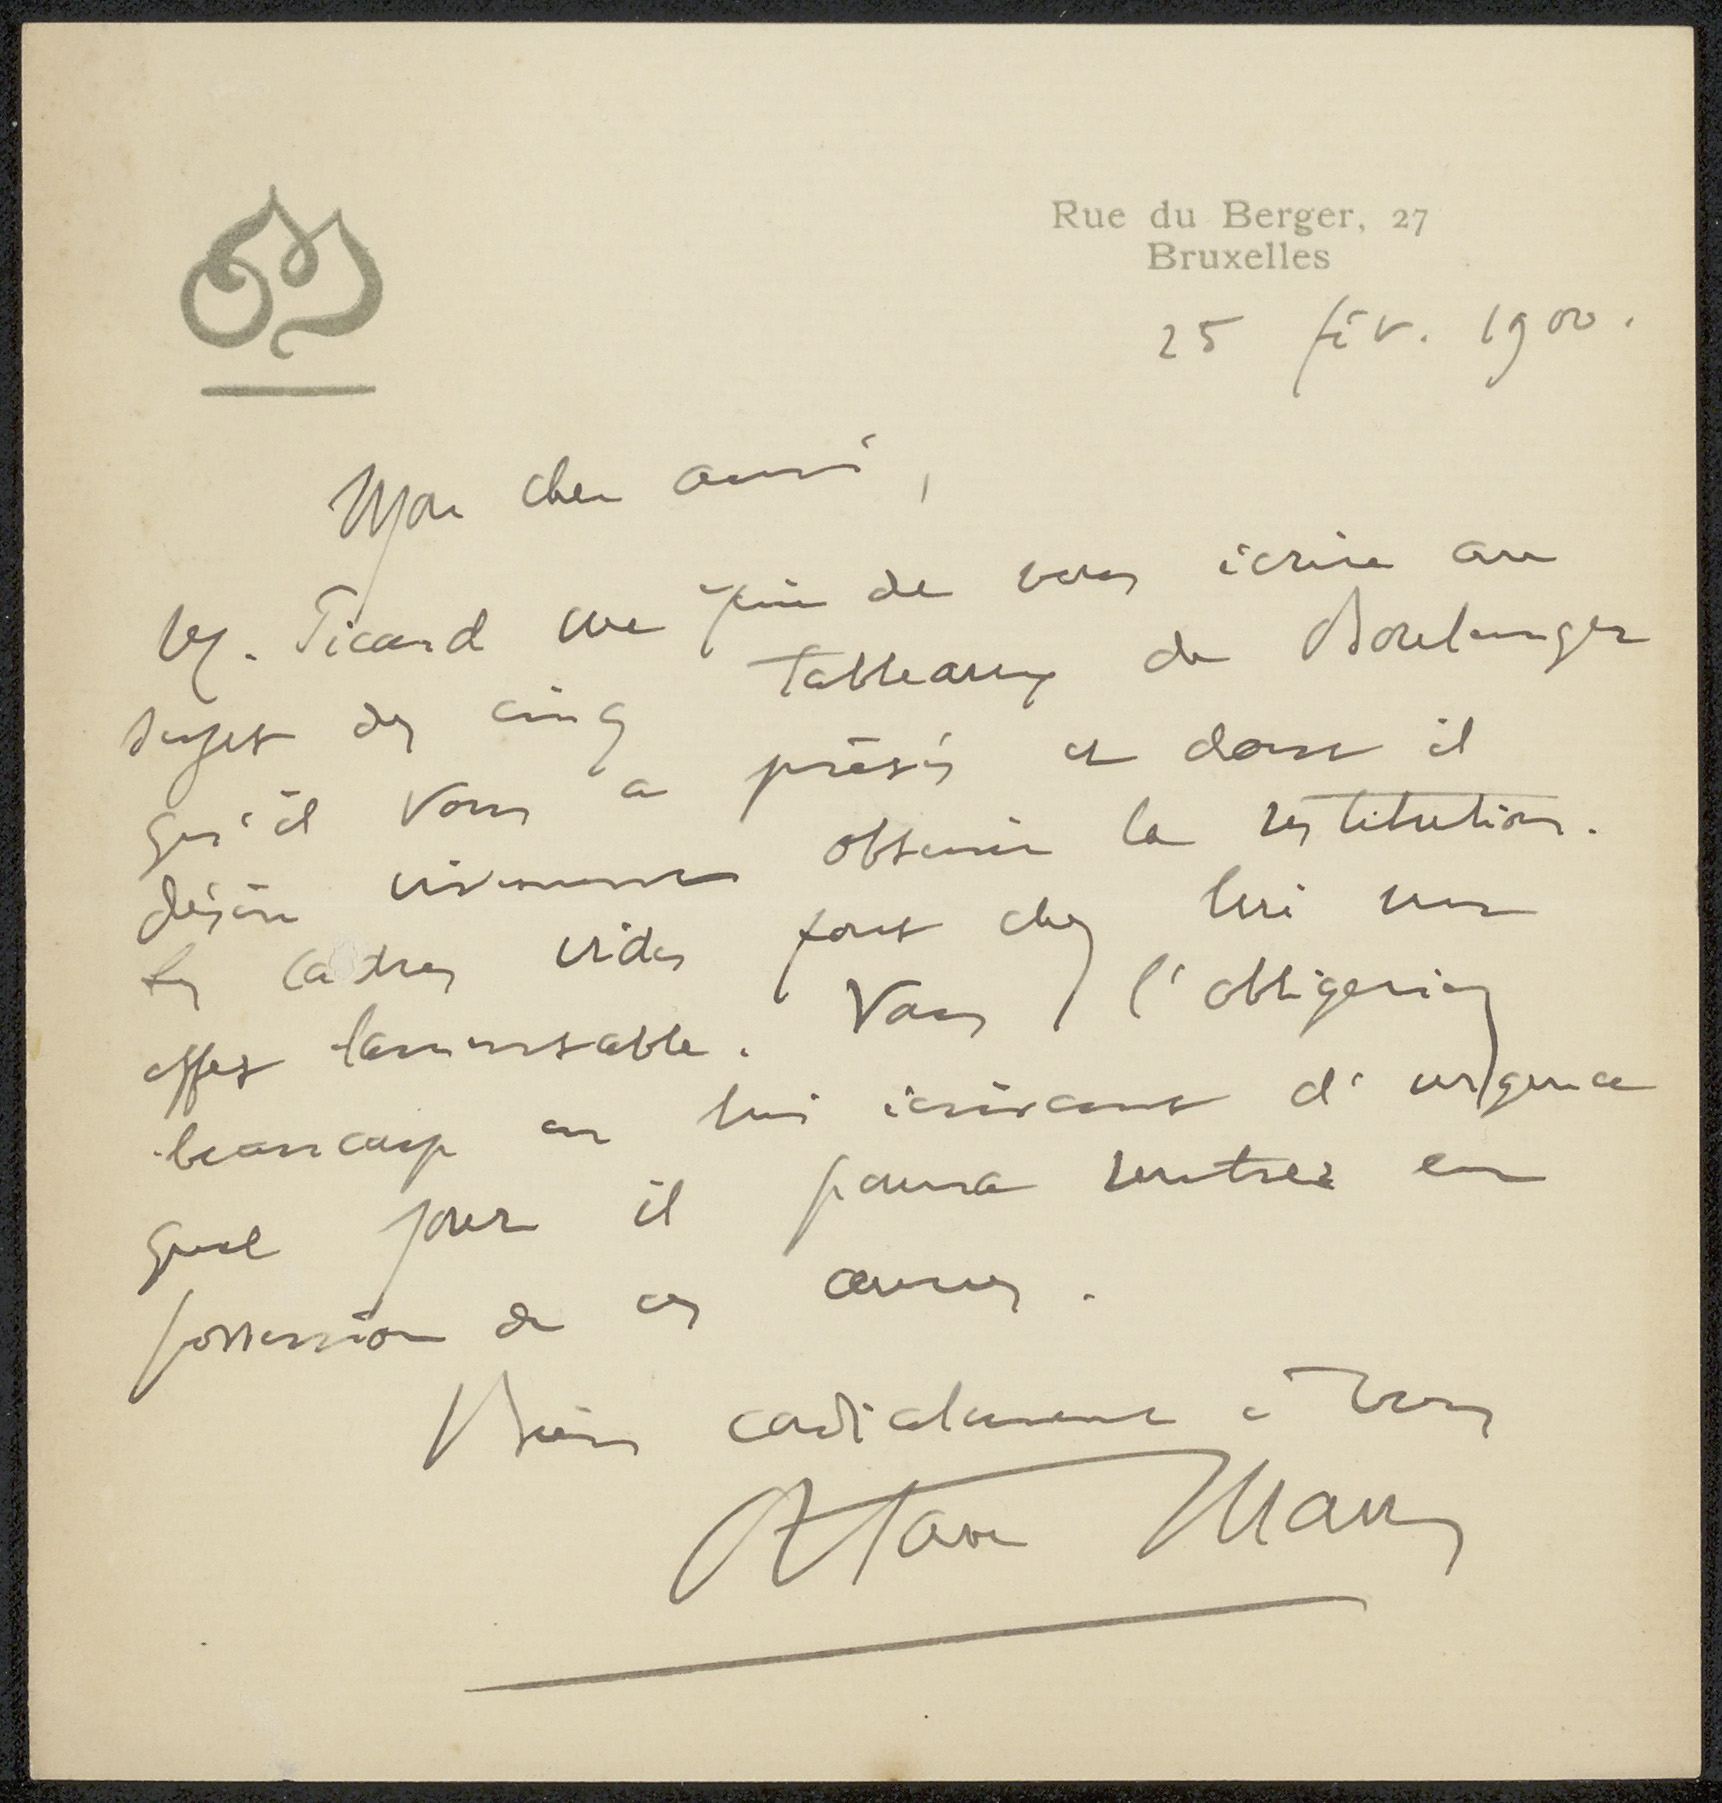 OM
Rue du Berger, 27
Bruxelles
25 fév. 1900.
Mon cher ami,
M. Picard me prie de vous écrire au
sujet des cinq tableaux de Boulenger
qu'il vous a prêtés et dont il
désire vivement obtenir la restitution.
Les cadres vides font chez lui un
effet lamentable. Vous l'obligeriez
beaucoup en lui écrivant d'urgence
quel jour il pourra rentrer en
possession de ces œuvres.
Bien cordialement à vous
Octave Maus